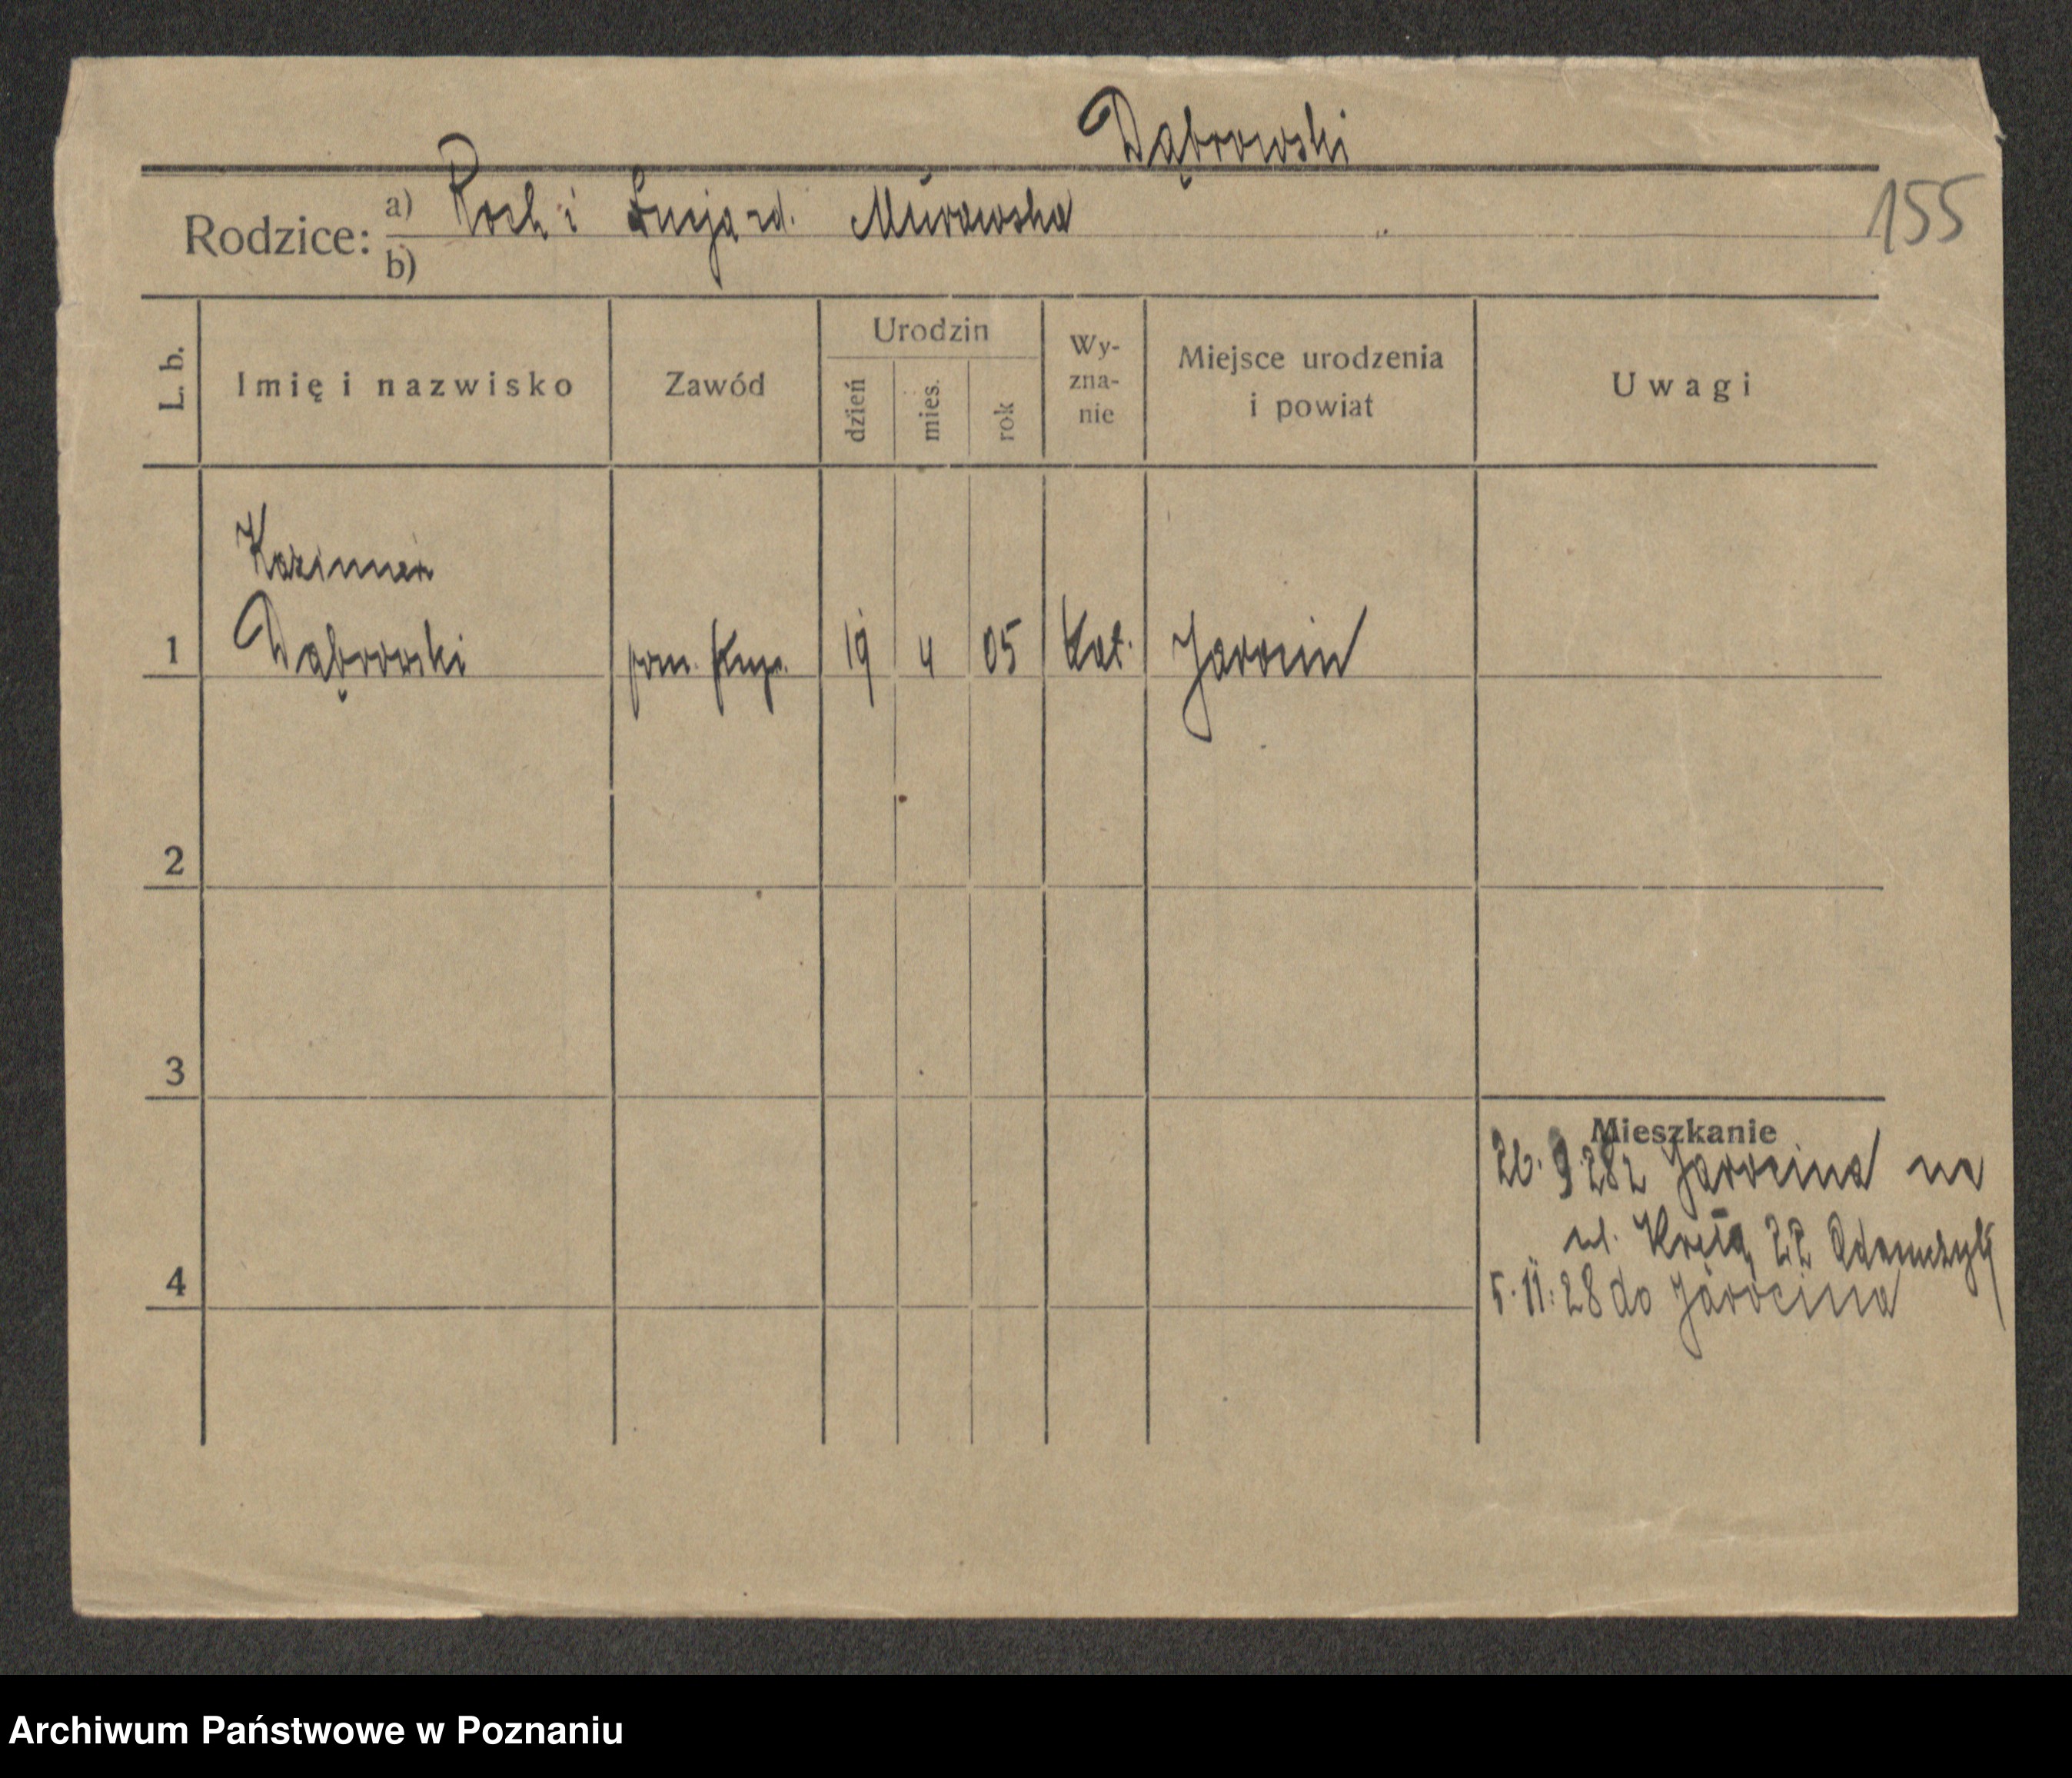 Dąbrowski
155
Rodzice: a) Roch i Łucja zd. Murawska
b)
L. b.
Imię i nazwisko
Zawód
Urodzin
dzień
mies.
rok
Wy-
zna-
nie
Miejsce urodzenia
i powiat
Uwagi
Kazimierz
1 Dąbrowski pom. kup. 19 4 05 kat. Jarocin
2
3
4
Mieszkanie
26. 9 28 z Jarocina na
ul. 22 Adamczyk
5. 11. 28 do Jarocina
Archiwum Państwowe w Poznaniu